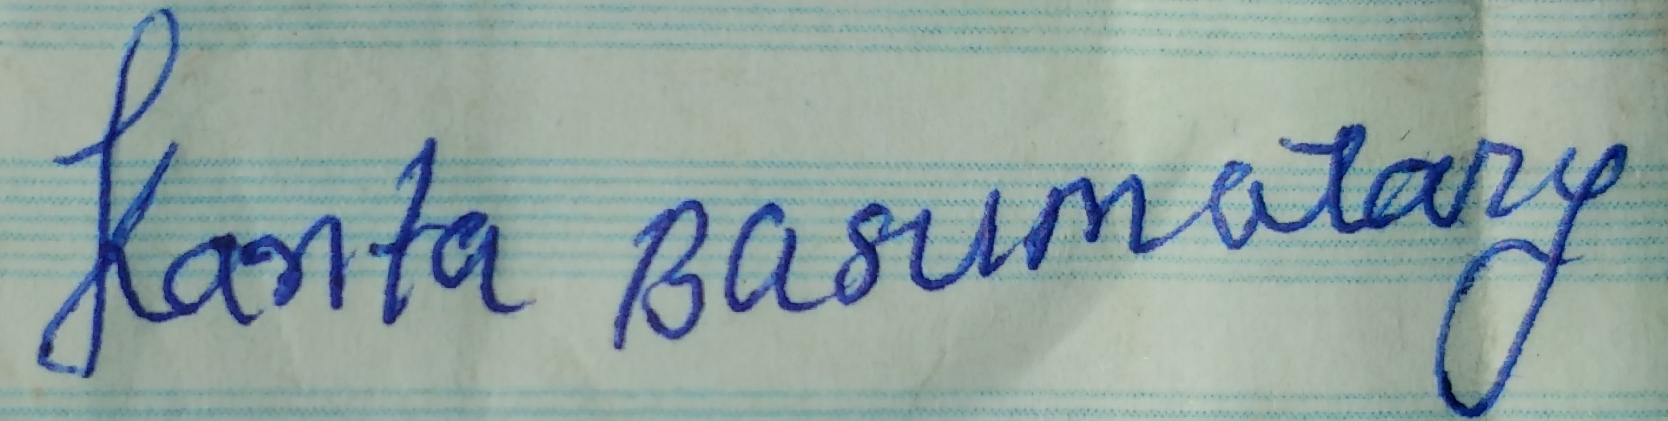 Kanta Basumatary